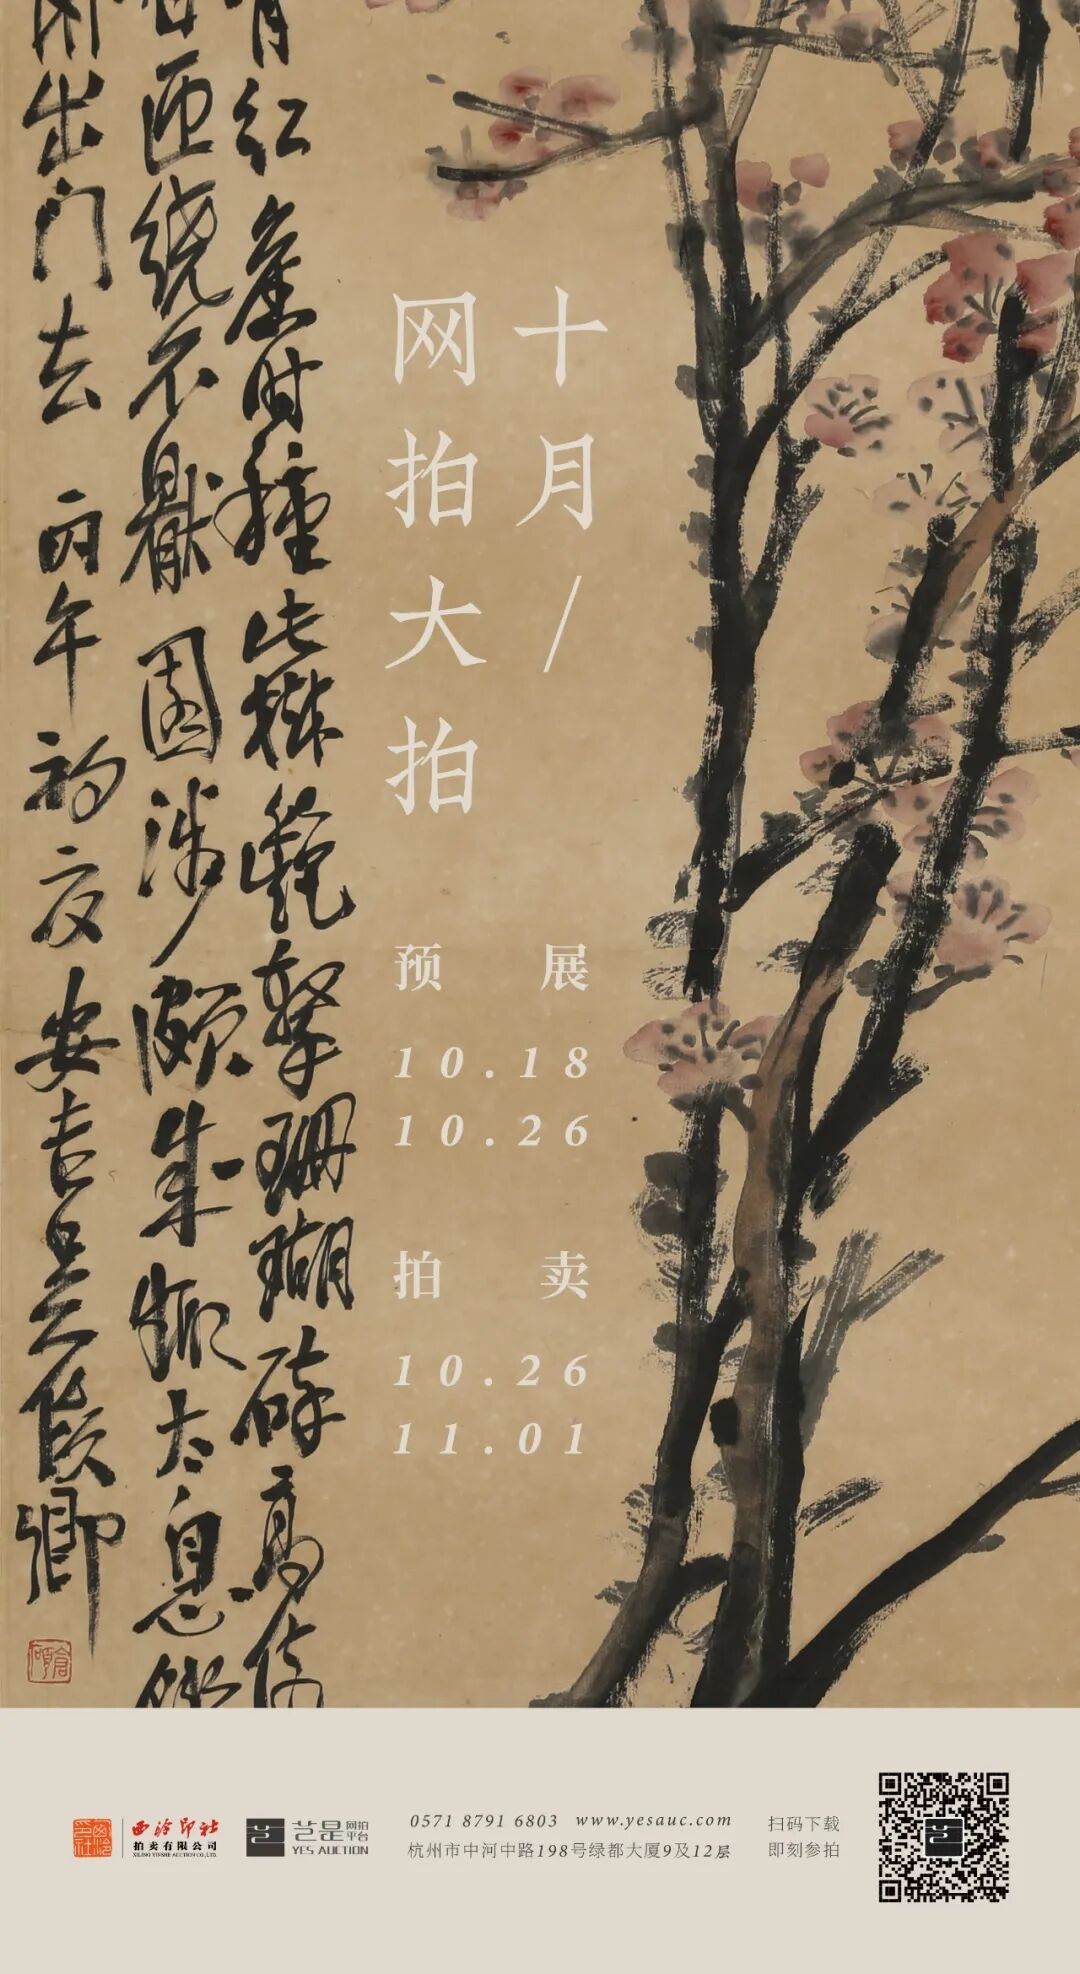 十月/
网拍大拍
预展
10.18
10.26
拍卖
10.26
11.01
红 时種此樹艷擊珊瑚碎高倚
匝繞不厭園涉頗成趣太息
出門去 丙午初夏安吉吴俊卿
倉碩
西泠印社
拍卖有限公司
XILING YINSHE AUCTION CO.,LTD.
艺是网拍平台
YES AUCTION
0571 8791 6803 www.yesauc.com
杭州市中河中路198号绿都大厦9及12层
扫码下载
即刻参拍